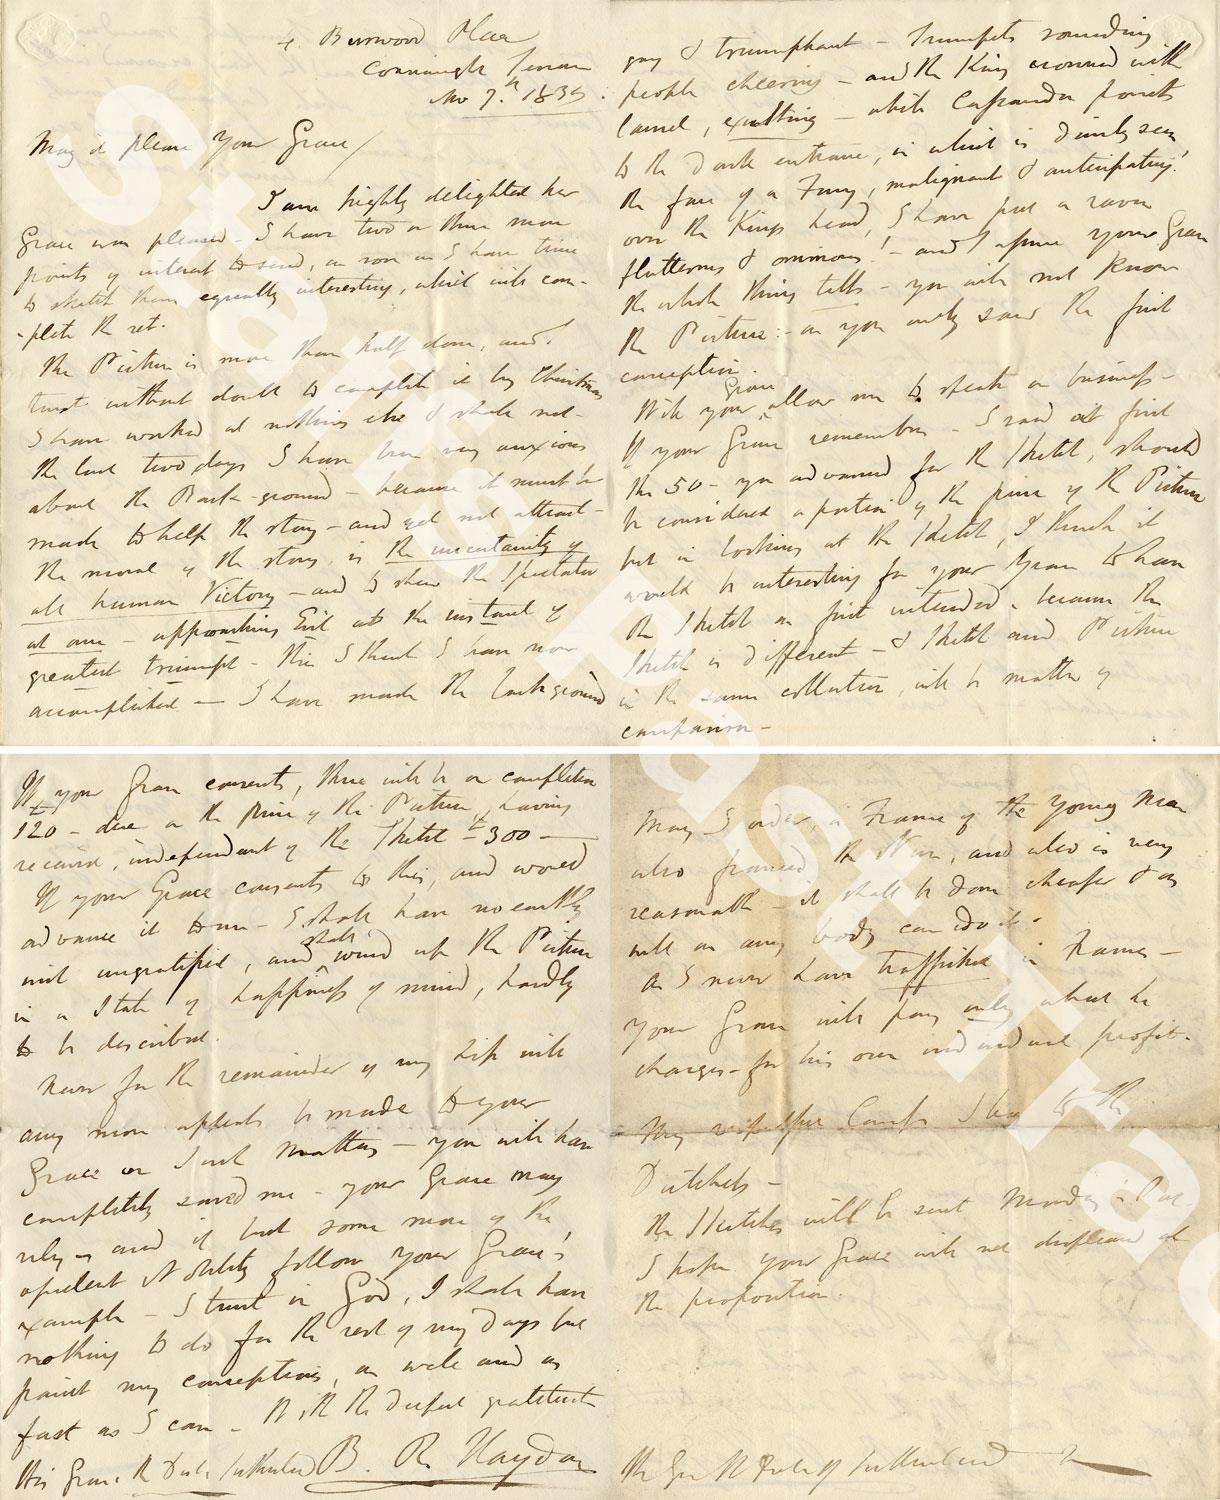 4 Burwood Place
Connaught Terrace
Nov 7th 1834.
May it please your Grace/
I am highly delighted her
Grace was pleased - I have two or three more
points of interest to send, as soon as I have time
to sketch them equally interesting, which will com-
-plete the set.
The Picture is more than half done, and
trust without doubt to complete it by Christmas
I have worked at nothing else & shall not -
the last two days I have been very anxious
about the Back-ground - because it must be
made to help the story - and yet not attract -
the moral of the story, is the uncertainty of
all human Victory - and to shew the Spectator
at once - approaching Evil at the instant of
greatest triumph - This I think I have now
accomplished — I have made the background
gay & triumphant - Trumpets sounding
people cheering - and the King crowned with
laurel, exulting - while Cassandra points
to the dark entrance, in which is dimly seen
the face of a Fury, malignant & anticipating!
over the Kings head, I have put a raven
fluttering & ominous! - and I assure your Grace
the whole thing tells - you will not know
the Picture - as you only saw the first
conception.
With your Grace allow me to speak on business -
If your Grace remembers - I said at first
the 50 - you advanced for the Sketch, should
be considered a portion of the price of the Picture
but in looking at the Sketch, I think it
would be interesting for your Grace to have
the Sketch as first intended, because the
Sketch is different - & Sketch and Picture
in the same collection, will be matter of
comparison -
If your Grace consents, there will be on completion
£120 - due on the price of the Picture, having
received, independant of the Sketch £300 —
If your Grace consents to this, and would
advance it to me - I shall have no earthly
wish ungratified, and shall wind up the Picture
in a State of happiness of mind, hardly
to be described.
Never for the remainder of my Life will
any more appeals be made to your
Grace on such matters - you will have
completely saved me - your Grace may
rely on and if but some more of the
opulent Nobility follow your Grace's
example - I trust in God, I shall have
nothing to do for the rest of my days but
paint my conceptions, as well and as
fast as I can - With the deepest gratitude
His Grace the Duke Sutherland B. R. Haydon
May I order, a Frame of the Young Man
who framed the Xenn, and who is very
reasonable - it shall be done cheaper & as
well as any body can do it -
As I never have trafficked in Frames -
Your Grace will pay only what he
charges - for his own individual profit.
My respectful Compts I beg to the
Dutchess -
The Sketches will be sent Monday
I hope your Grace will not displeased at
the proposition.
His Grace the Duke of Sutherland